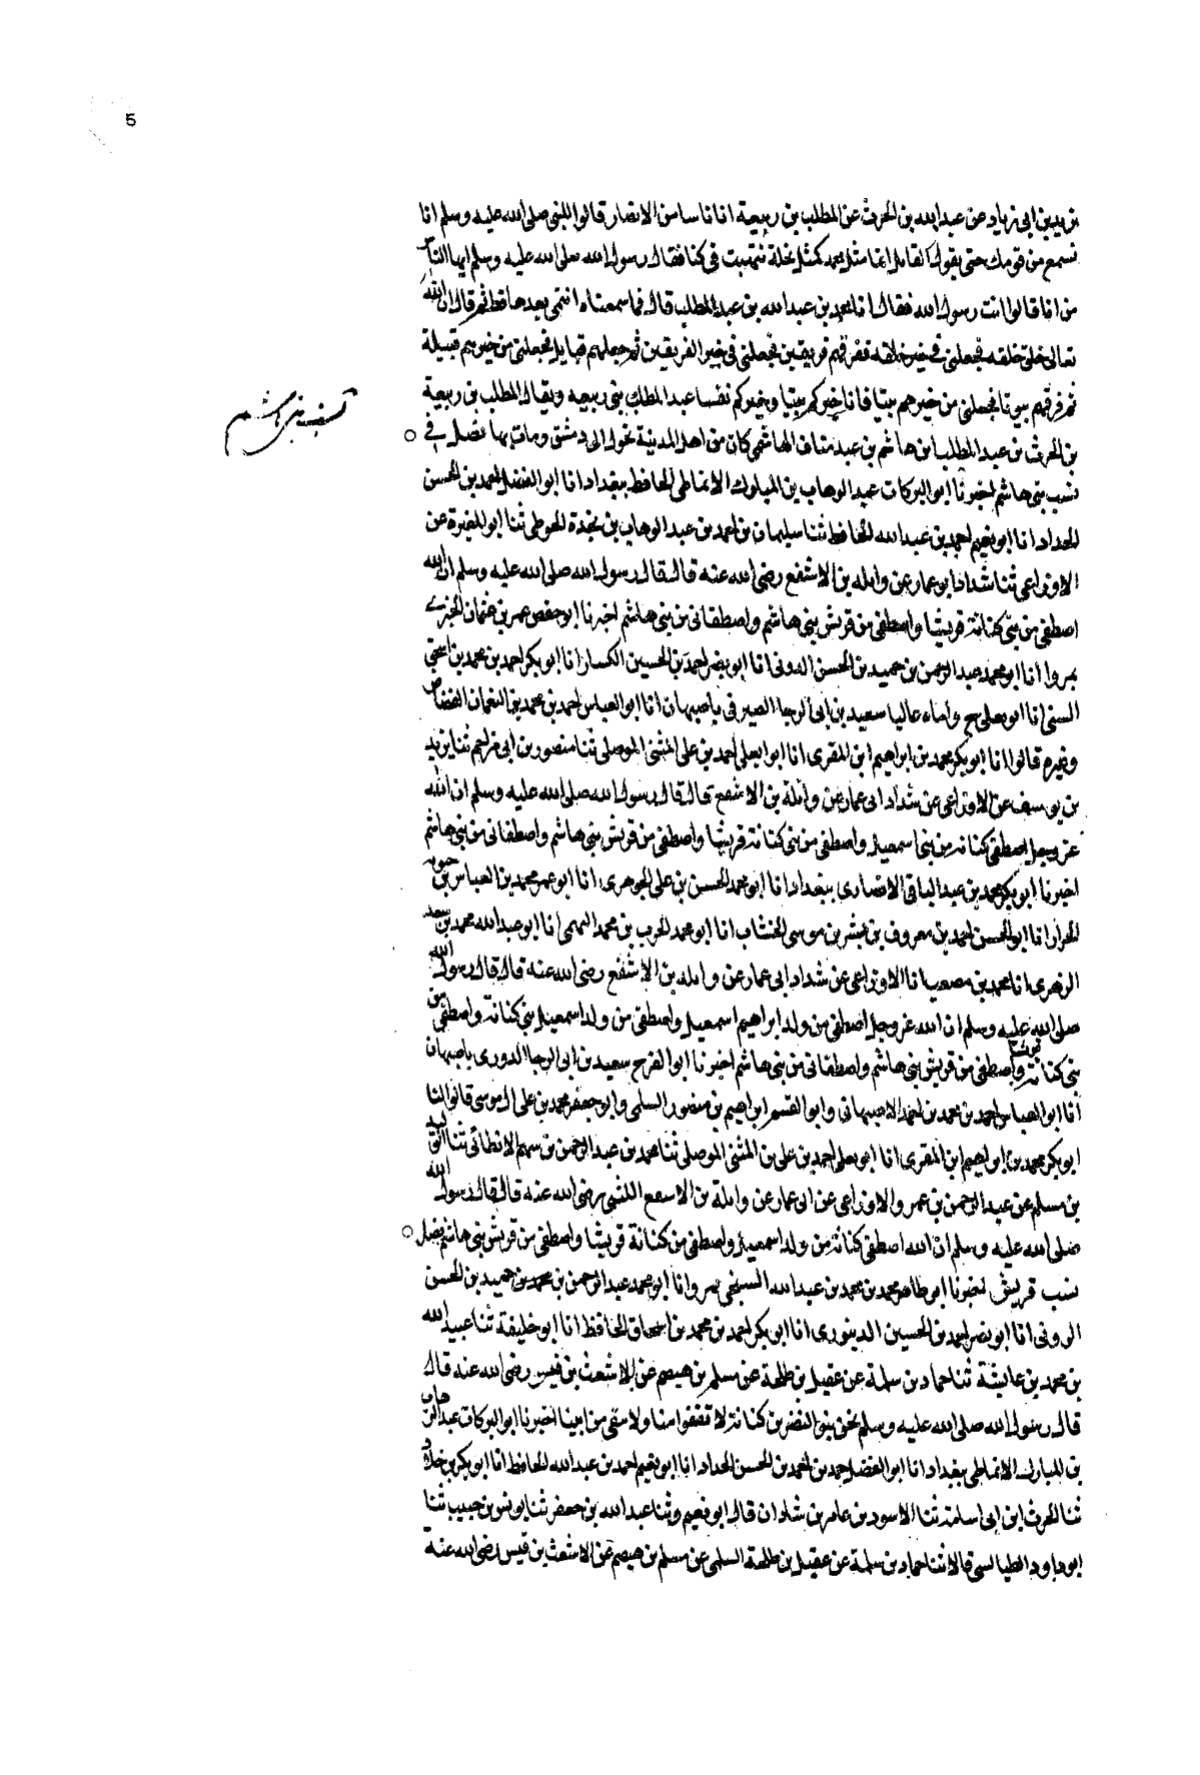 5
يزيد بن ابى زياد عن عبد الله بن الحرث عن المطلب بن ربيعة ان اناسا من الانصار قالوا للنبى صلى الله عليه وسلم انا
نسمع من قومك حتى يقول القايل انما مثل محمد كمثل نخلة نبتت فى كنا فقال رسول الله صلى الله عليه وسلم ايها الناس
من انا قالوا انت رسول الله فقال انا محمد بن عبد الله بن عبد المطلب قال فما سمعناه انتمى بعدها قط ثم قال ان الله
تعالى خلق خلقه فجعلنى فى خير خلقه ففرقهم فريقين فجعلنى فى خير الفريقين ثم جعلهم قبايل فجعلنى من خيرهم قبيلة
ثم فرقهم بيوتا فجعلنى من خيرهم بيتا فانا خيركم بيتا وخيركم نفسا عبد المطلب بنى ربيعه ويقال المطلب بن ربيعة
بن الحرث بن عبد المطلب ابن هاشم بن عبد مناف الهاشمى كان من اهل المدينة تحول الى دمشق ومات بها فصل فى
نسب بنى هاشم
نسب بنى هاشم اخبرنا ابو البركات عبد الوهاب بن المبارك الانماطى الحافظ ببغداد انا ابو الفضل احمد بن الحسن
الحداد انا ابو نعيم احمد بن عبد الله الحافظ ثنا سليمان بن احمد بن عبد الوهاب بن نجدة الحوطى ثنا ابو المغيرة عن
الاوزاعى ثنا شداد ابو عمار عن واثله بن الاسقع رضى الله عنه قال قال رسول الله صلى الله عليه وسلم ان الله
اصطفى من بنى كنانة قريشا واصطفى من قريش بنى هاشم واصطفانى من بنى هاشم اخبرنا ابو حفص عمر بن عثمان الجنزى
بمرو انا ابو محمد عبد الرحمن بن حميد بن الحسن الدونى انا ابو نصر احمد بن الحسين الكسار انا ابو بكر احمد بن محمد بن اسحق
السنى انا ابو يعلى ح واناه عاليا سعيد بن ابى الرجا الصيرفى باصبهان انا ابو العباس احمد بن محمد بن النعمان القصاص
وغيره قالوا انا ابو بكر محمد بن ابراهيم ابن المقرى انا ابو ابعلى احمد بن على المثنى الموصلى ثنا منصور بن ابى مزاحم ثنا يزيد
بن يوسف عن الاوزاعى عن شداد ابى عمار عن واثلة بن الاشقع قال قال رسول الله صلى الله عليه وسلم ان الله
عز وجل اصطفى كنانه من بنى اسمعيل واصطفى من بنى كنانة قريشا واصطفى من قريش بنى هاشم واصطفانى من بنى هاشم
اخبرنا ابو بكر محمد بن عبد الباقى الانصارى ببغداد انا ابو محمد الحسن بن على الجوهرى انا ابو عمر محمد بن العباس بن حيويه
الخزاز انا ابو الحسن احمد بن معروف بن بشر بن موسى الخشاب انا ابو محمد الحرب بن محمد التميمى انا ابو عبد الله محمد بن سعد
الزهرى انا محمد بن مصعب انا الاوزاعى عن شداد ابى عمار عن واثله بن الاشقع رضى الله عنه قال قال رسول الله
صلى الله عليه وسلم ان الله عز وجل اصطفى من ولد ابراهيم اسمعيل واصطفى من ولد اسمعيل بنى كنانة واصطفى من
بنى كنانة قريشا واصطفى من قريش بنى هاشم واصطفانى من بنى هاشم اخبرنا ابو الفرج سعيد بن ابى الرجا الدورى باصبهان
انا ابو العباس احمد بن محمد بن احمد الاصبهانى وابو القسم ابراهيم بن منصور السلمى وابو جعفر محمد بن على ال موسى قالوا انا
ابو بكر محمد بن ابراهيم ابن المقرى انا ابو يعلى احمد بن على بن المثنى الموصلى ثنا محمد بن عبد الرحمن بن سهم الانطاكى ثنا الوليد
بن مسلم عن عبد الرحمن بن عمرو الاوزاعى عن ابى عمار عن واثلة بن الاسقع الليثى رضى الله عنه قال قال رسول الله
صلى الله عليه وسلم ان الله اصطفى كنانة من ولد اسمعيل واصطفى من كنانة قريشا واصطفى من قريش بنى هاشم فصل
نسب قريش اخبرنا ابو طاهر محمد بن محمد بن عبد الله السنجى بمرو انا ابو محمد عبد الرحمن بن محمد بن حميد بن الحسن
الدونى انا ابو نصر احمد بن الحسين الدينورى انا ابو بكر احمد بن محمد بن اسحاق الحافظ انا ابو خليفة ثنا عبيد الله
بن محمد بن عايشة ثنا حماد بن سلمة عن عقيل بن طلحة عن مسلم بن هيصم عن الاشعث بن قيس رضى الله عنه قال
قال رسول الله صلى الله عليه وسلم نحن بنو النضر بن كنانة لا نقفوا امنا ولا ننتفى من ابينا اخبرنا ابو البركات عبد الوهاب
بن المبارك الانماطى ببغداد انا ابو الفضل احمد بن احمد بن الحسن الحداد انا ابو نعيم احمد بن عبد الله الحافظ انا ابو بكر بن خلاد
ثنا الحرث ابن ابى اسامة ثنا الاسود بن عامر بن شاذان قال ابو نعيم وثنا عبد الله بن جعفر ثنا يونس بن حبيب ثنا
ابو داود الطيالسى قالا ثنا حماد بن سلمة عن عقيل بن طلحة السلمى عن مسلم بن هيصم عن الاشعث بن قيس رضى الله عنه